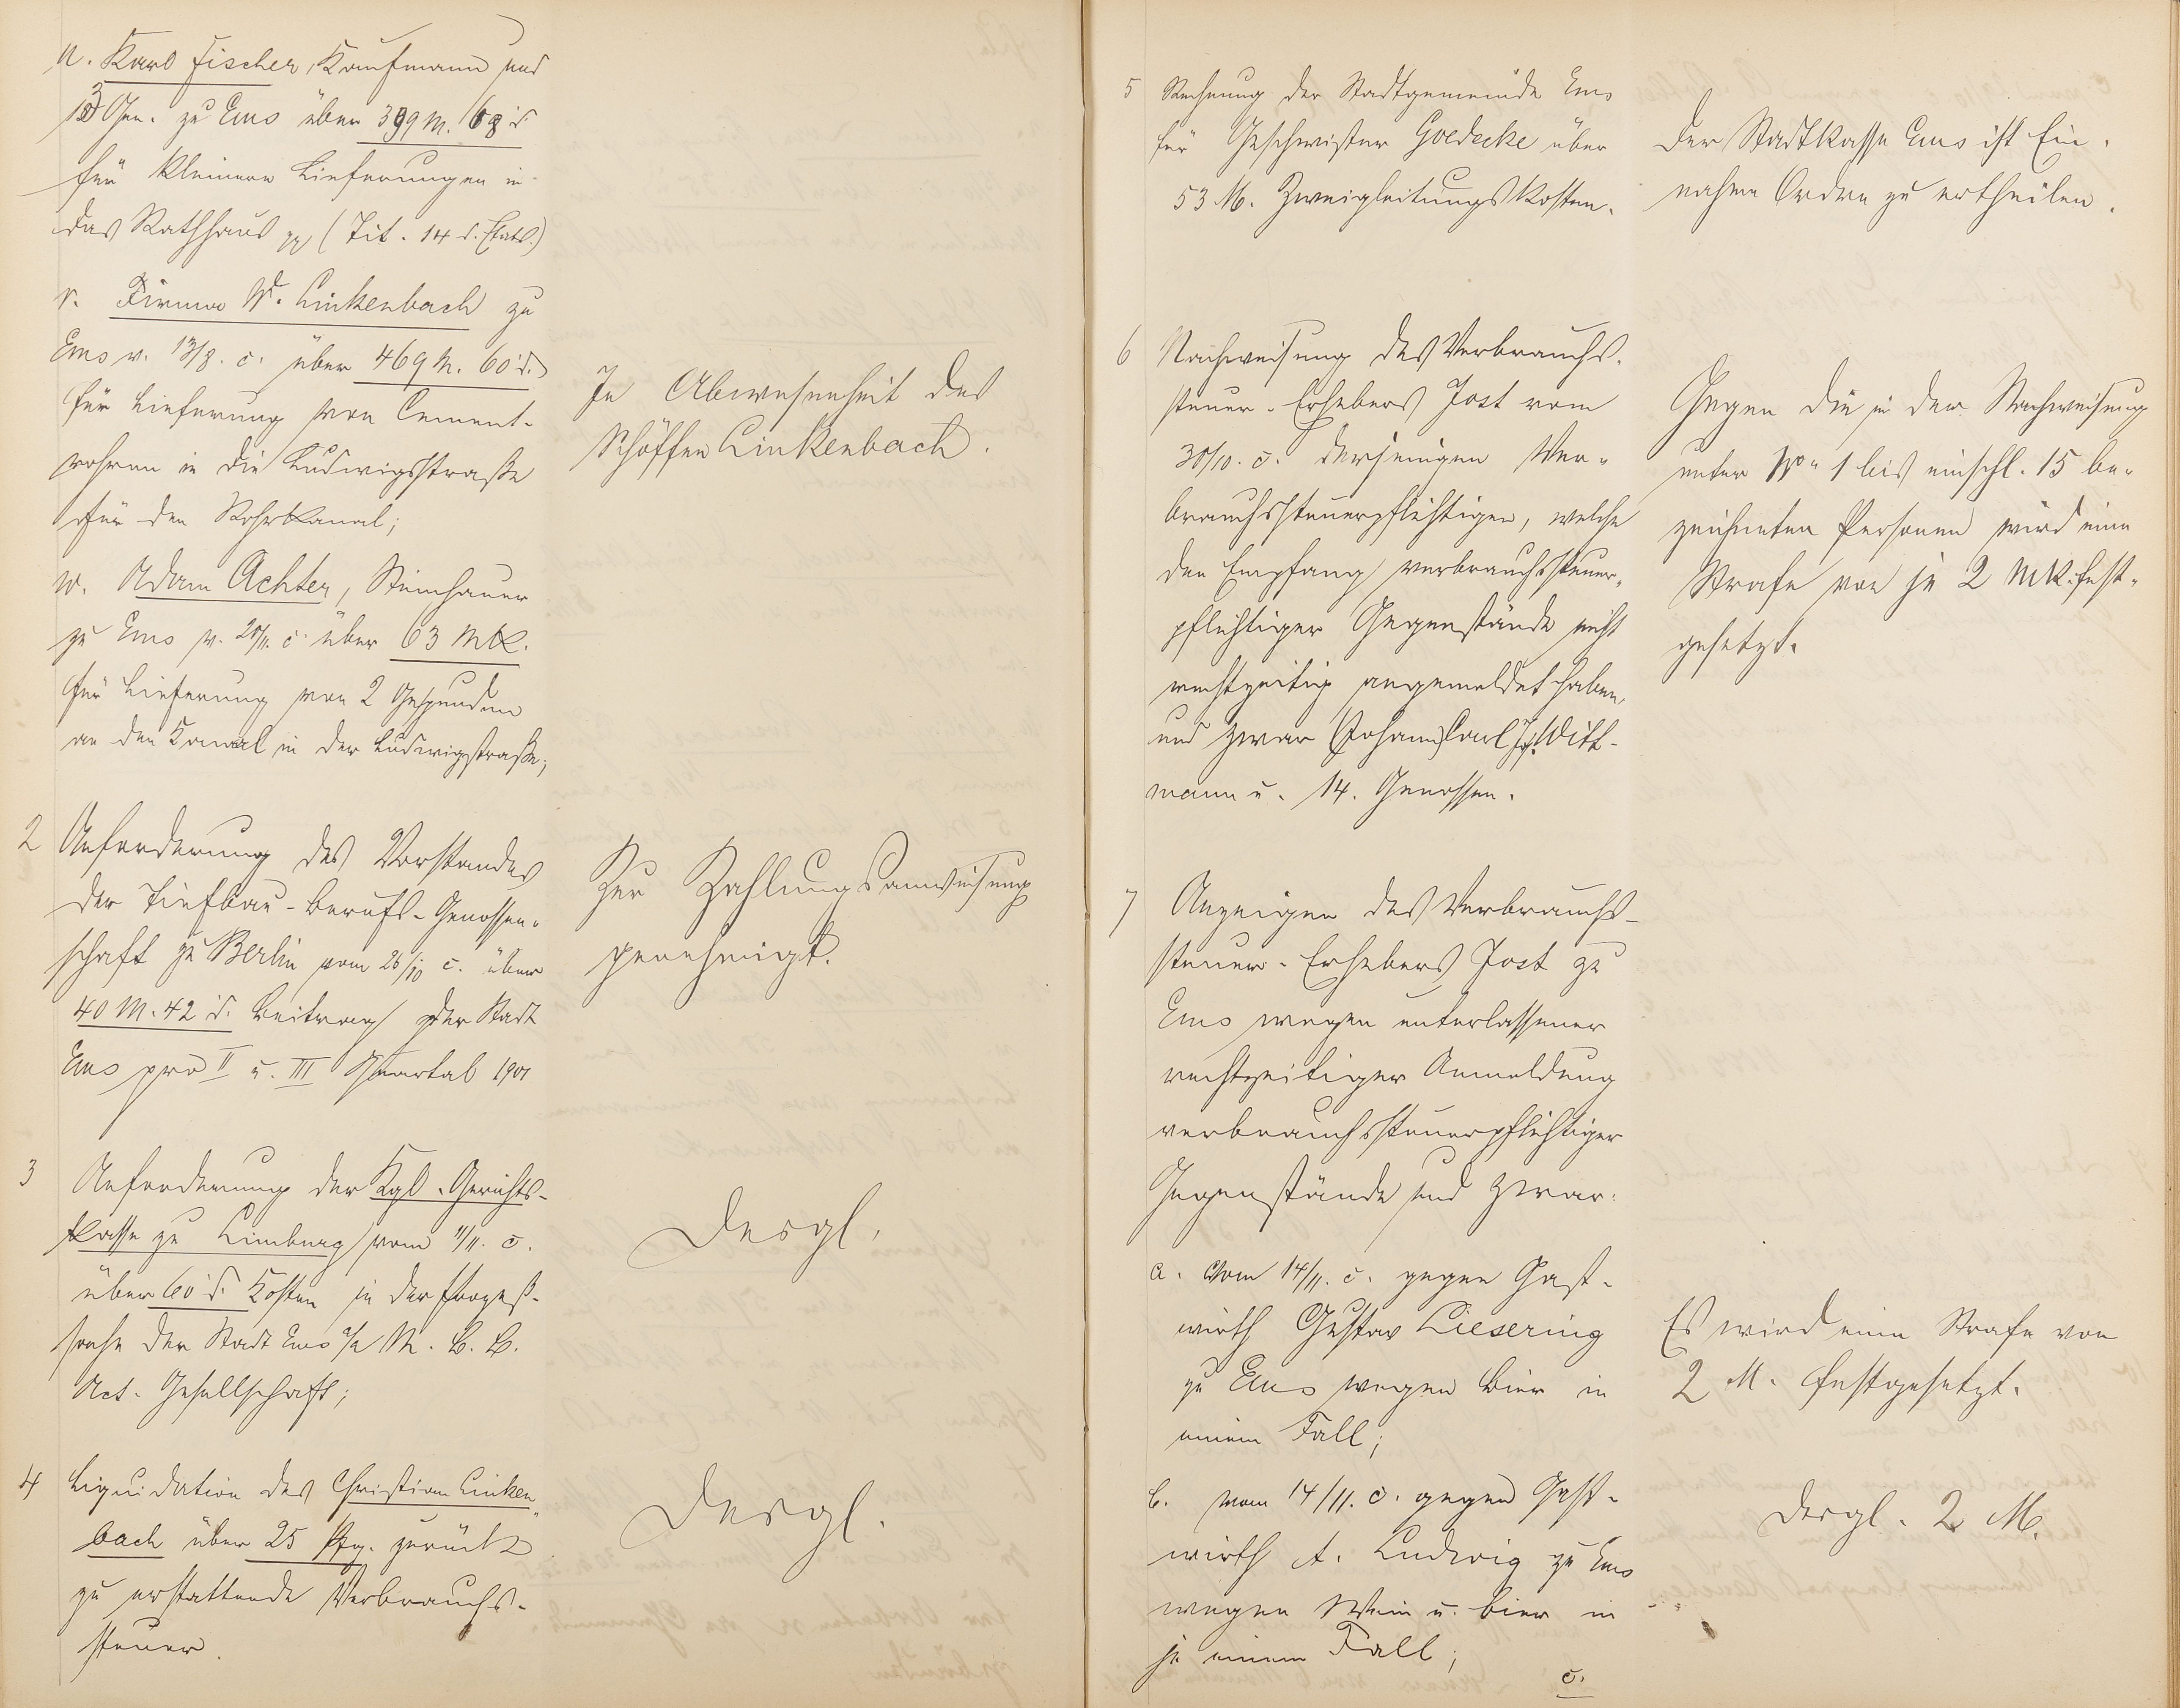 u. Karl Fischer, Kaufmann und
Gen. zu Ems über 399 M. 68 d.
für kleinere Lieferungen in
das Rathhaus pp (Tit. 14 d. Etats.)
v. Firma W. Linkenbach zu
Ems v. 13/8. c. über 469 M. 60 d.
für Lieferung von Cement-
rohren in die Ludwigsstraße
für den Rohrkanal;
w. Adam Achter, Steinhauer
zu Ems v. 25/11. c. über 63 Mk.
für Lieferung von 2
an den Kanal in der Ludwigstraße;
In Abwesenheit des
Schöffen Linkenbach.
2 Anforderung des Vorstandes
der Tiefbau-Berufs-Genossen-
schaft zu Berlin vom 26/10 c. über
40 M. 42 d. Beitrag der Stadt
Ems pro II u. III Quartal 1901
Zur Zahlungsanweisung
genehmigt.
3 Anforderung der Kgl. Gerichts-
kasse zu Limburg vom 11/11. c.
über 60 d. Kosten in der Prozeß-
sache der Stadt Ems a/a M. B. B.
Act. Gesellschaft;
Desgl.
4 Liquidation des Christian Linken-
bach über 25 Pfg. zurück
zu erstattende Verbrauchs-
steuer.
Desgl.
5 Rechnung der Stadtgemeinde Ems
für Geschwister Goedecke über
53 M. Zweigleitungskosten.
Der Stadtkasse Ems ist Ein-
nahme Ordre zu ertheilen.
6 Nachweisung des Verbrauchs-
steuer-Erhebers Jost vom
30/10. c. derjenigen Ver-
brauchssteuerpflichtigen, welche
den Empfang verbrauchssteuer-
pflichtiger Gegenstände nicht
rechtzeitig angemeldet haben,
und zwar Johann Carl Jos. Witt-
mann u. 14. Genossen.
Gegen die in der Nachweisung
unter No. 1 bis einschl. 15 be-
zeichneten Personen wird eine
Strafe von je 2 Mk. fest-
gesetzt.
7 Anzeigen des Verbrauchs-
steuer-Erhebers Jost zu
Ems wegen unterlassener
rechtzeitiger Anmeldung
verbrauchssteuerpflichtiger
Gegenstände und zwar:
a. vom 14/11. c. gegen Gast-
wirth Gustav Liesering
zu Ems wegen Bier in
einem Fall;
Es wird eine Strafe von
2 M. festgesetzt.
b. vom 14/11. c. gegen Gast-
wirth A. Ludwig zu Ems
wegen Wein u. Bier in
je einem Fall;
Desgl. 2 M.
c.